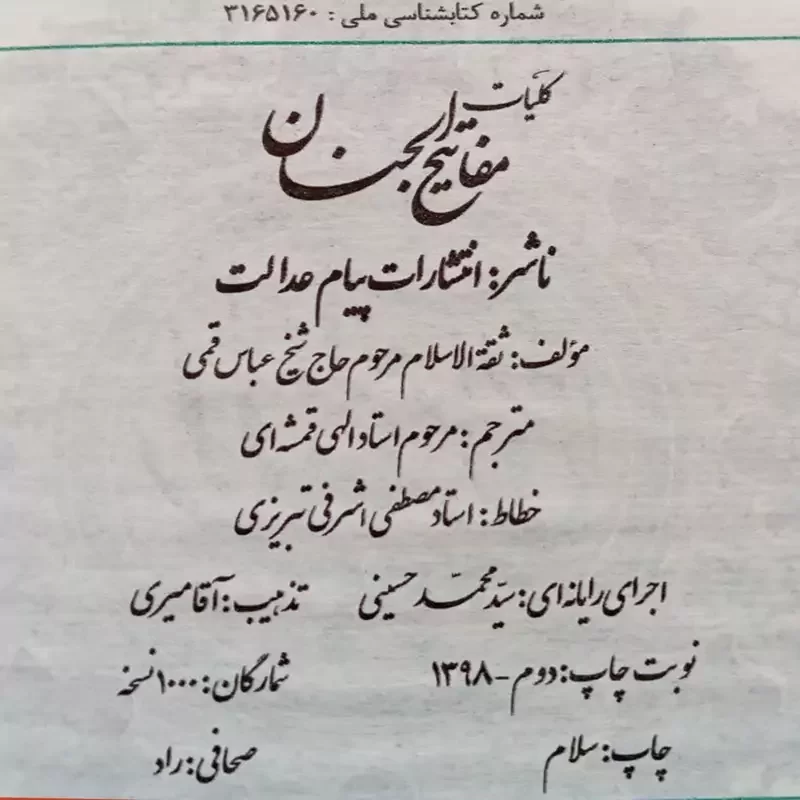 شماره کتابشناسی ملی : ۳۱۶۵۱۶۰
کلیّات
مفاتیح الجنان
ناشر: انتشارات پیام عدالت
مؤلف: ثقة الاسلام مرحوم حاج شیخ عباس قمی
مترجم: مرحوم استاد الهی قمشه‌ای
خطاط: استاد مصطفی اشرفی تبریزی
اجرای رایانه‌ای: سیّد محمّد حسینی تذهیب: آقامیری
نوبت چاپ: دوم - ۱۳۹۸ شمارگان: ۱۰۰۰ نسخه
چاپ: سلام صحافی: راد